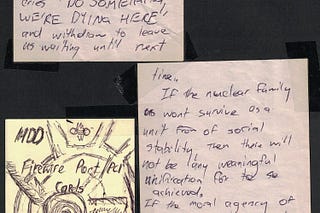 cries "NO SOMETHING,
WE'RE DYING HERE",
and withdraw to leave
us waiting until next
time..
If the nuclear family
wont survive as a
unit of social
stability, then there will
not be any meaningful
for to so
achieved.
If the moral agency of
HDD
Firewire Port Pci
Cards